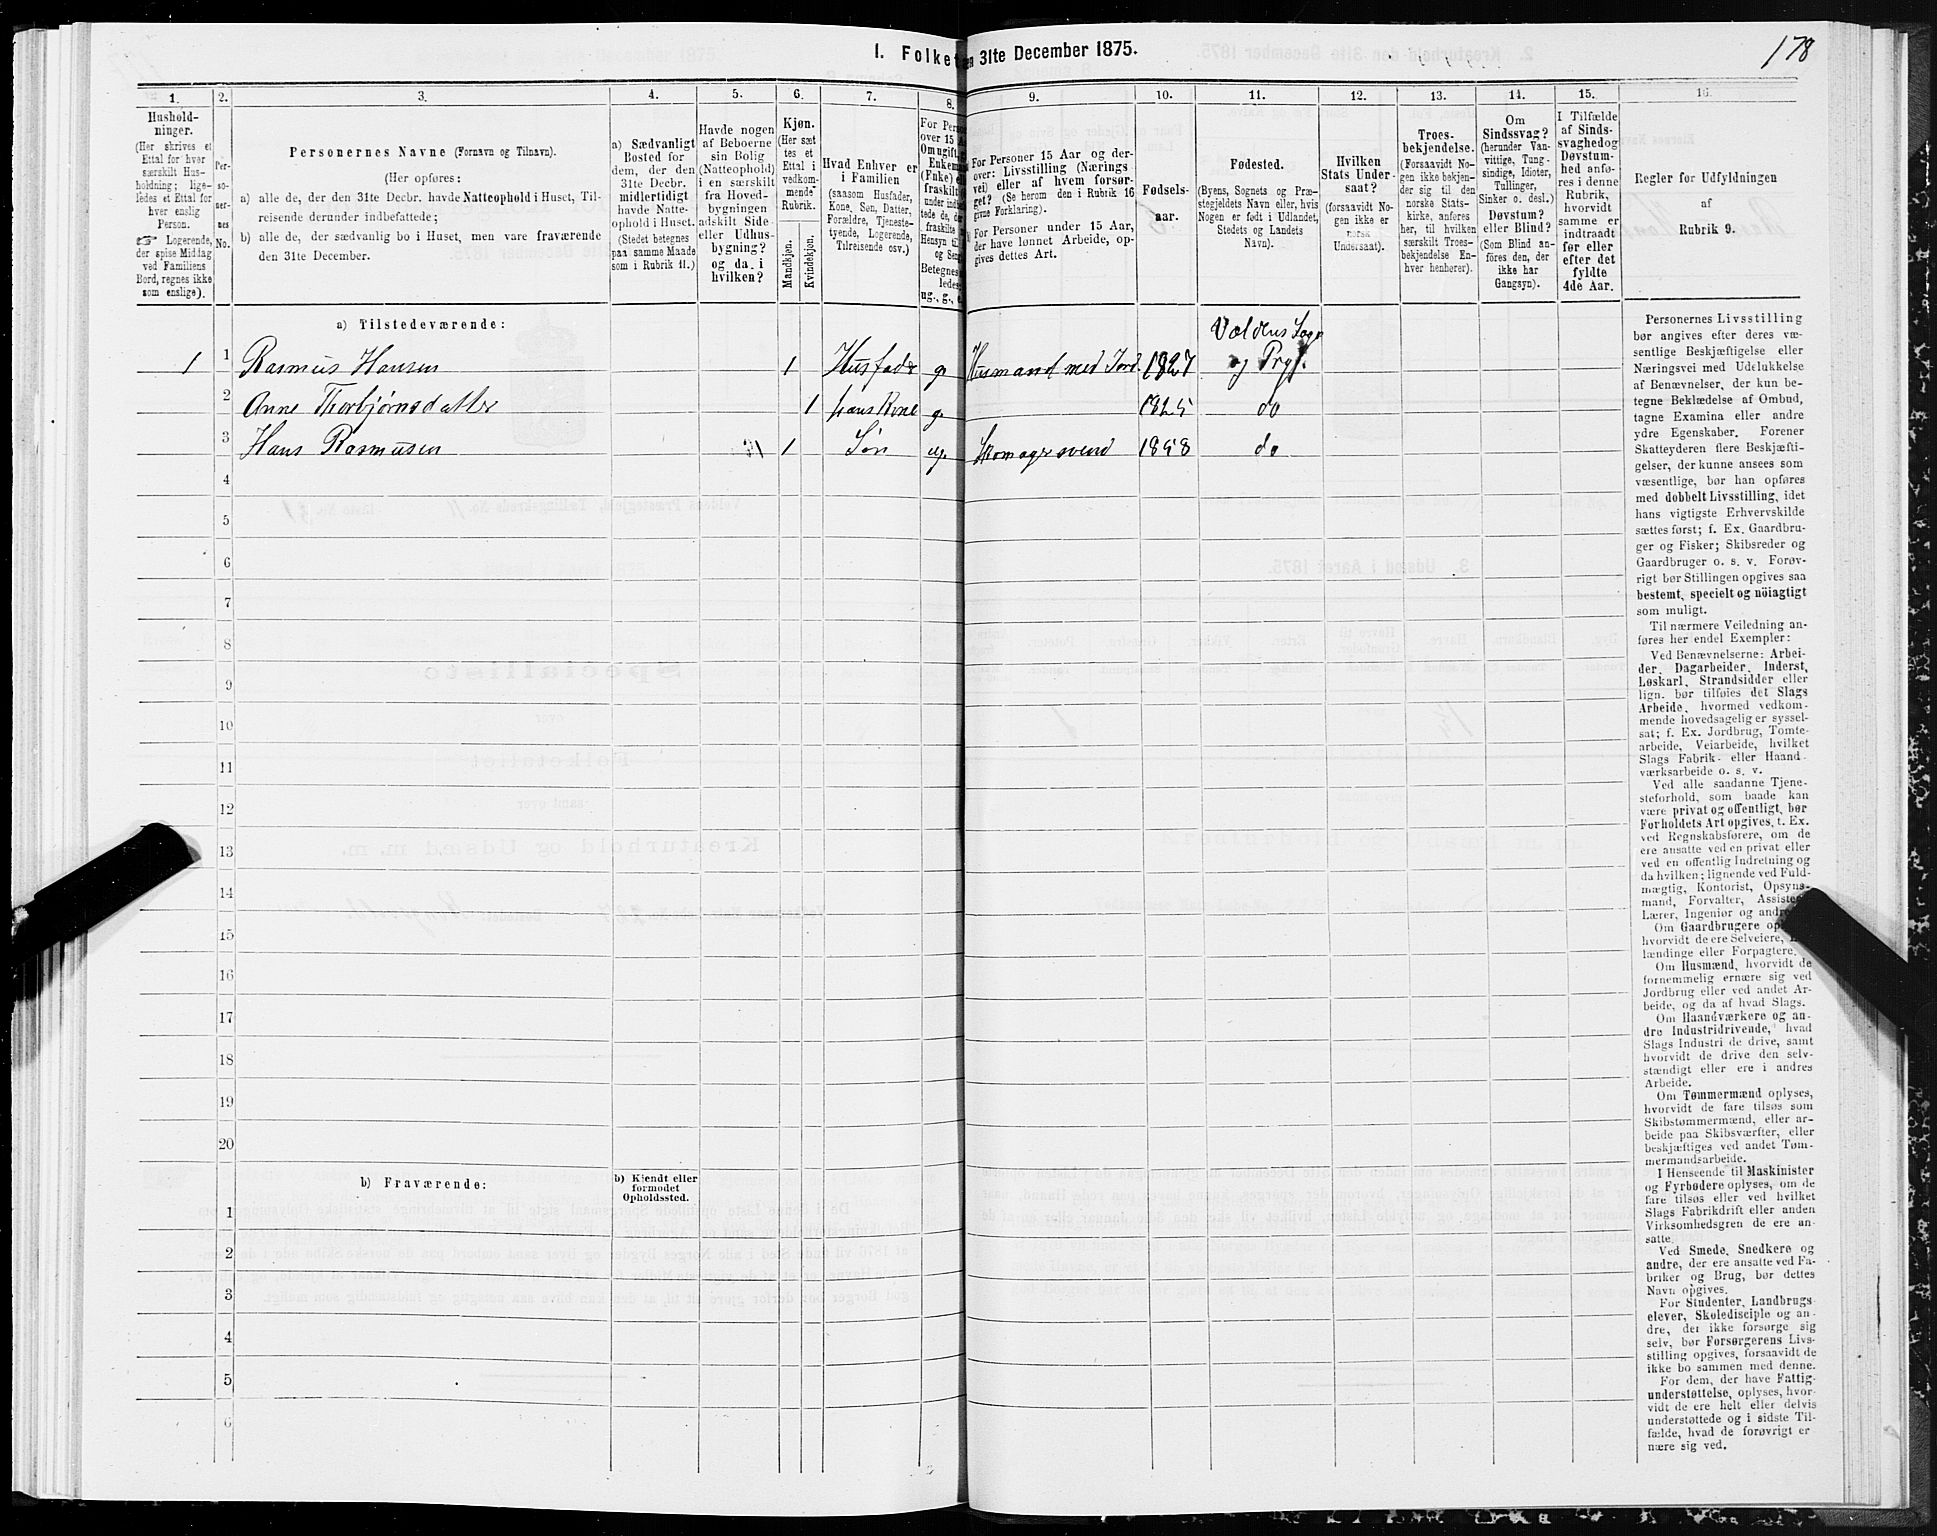 178
I. Folket
en 31te December 1875.
1.
Hushold-
ninger.
(Her skrives et
Ettal for hver
særskilt Hus-
holdning; lige-
ledes et Ettal for
hver enslig
Person.
Logerende,
der spise Middag
ved Familiens
Bord, regnes ikke
som enslige).
2.
Per-
so-
ner-
nes
No.
3.
Personernes Navne (Fornavn og Tilnavn).
(Her opføres:
a) alle de, der den 31te Decbr. havde Natteophold i Huset, Til-
reisende derunder indbefattede;
b) alle de, der sædvanlig bo i Huset, men vare fraværende
den 31te December.
4.
a) Sædvanligt
Bosted for
dem, der den
31te Decbr.
midlertidigt
havde Natte-
ophold i Huset.
(Stedet betegnes
paa samme Maade
som i Rubrik 11.)
5.
Havde nogen
af Beboerne
sin Bolig
(Natteophold)
i en særskilt
fra Hoved-
bygningen
adskilt Side-
eller Udhus-
bygning?
og da i
hvilken?
6.
Kjøn.
(Her sæt-
tes et
Ettal i
vedkom-
mende
Rubrik.
Mandkjøn.
Kvindekjøn.
7.
Hvad Enhver er
i Familien
(saasom Husfader,
Kone, Søn, Datter,
Forældre, Tjeneste-
tyende, Logerende,
Tilreisende osv.)
8.
For Perso
over 15 A
Om ugift, g
Enkema
(Enke) e
fraskilt
under indb
tede de, d
fraskilte
Hensyn til
og Sen
Betegnes
ledes;
ug., g., e.
9.
For Personer 15 Aar og der-
over: Livsstilling (Nærings-
vei) eller af hvem forsør-
get? (Se herom den i Rubrik 16
givne Forklaring).
For Personer under 15 Aar,
der have lønnet Arbeide, op-
gives dettes Art.
10.
Fødsels-
aar.
11.
Fødested.
(Byens, Sognets og Præ-
stegjeldets Navn eller, hvis
Nogen er født i Udlandet,
Stedets og Landets
Navn).
12.
Hvilken
Stats Under-
saat?
(forsaavidt No-
gen ikke er
norsk
Undersaat).
13.
Troes-
bekjendelse.
(Forsaavidt No-
gen ikke bekjen-
der sig til den
norske Stats-
kirke, anføres
her, til hvilken
særskilt Troes-
bekjendelse En-
hver henhører).
14.
Om
Sindssvag?
(herunder Van-
vittige, Tung-
sindige, Idioter,
Tullinger,
Sinker o. desl.)
Døvstum?
eller Blind?
(Som Blind an-
føres den, der
ikke har
Gangsyn).
15.
I Tilfælde
af Sinds-
svaghed og
Døvstum-
hed anfø-
res i denne
Rubrik,
hvorvidt
samme er
indtraadt
før eller
efter det
fyldte
4de Aar.
16.
Regler for Udfyldningen
af
Rubrik 9.
a) Tilstedeværende:
Voldens Sogn
1 1 Rasmus Hansen 1 Husfader g Husmand med Jord. 1827 og Prgj.
2 Anne Thorbjørnsdatter 1 hans Kone g. 1825 do
3 Hans Rasmusen 1 Søn ug. Skomagersvend 1858 do
4
5
6
7
8
9
10
11
12
13
14
15
16
17
18
19
20
b) Fraværende:
b) Kjendt eller
formodet
Opholdssted.
1
2
3
4
5
6
Personernes Livsstilling
bør angives efter deres væ-
sentlige Beskjæftigelse eller
Næringsvei med Udelukkelse
af Benævnelser, der kun be-
tegne Beklædelse af Ombud,
tagne Examina eller andre
ydre Egenskaber. Forener
Skatteyderen flere Beskjæfti-
gelser, der kunne ansees som
væsentlige, bør han opføres
med dobbelt Livsstilling, idet
hans vigtigste Erhvervskilde
sættes først; f. Ex. Gaardbru-
ger og Fisker; Skibsreder og
Gaardbruger o. s. v. Forøv-
rigt bør Stillingen opgives saa
bestemt, specielt og nöiagtigt
som muligt.
Til nærmere Veiledning an-
føres her endel Exempler:
Ved Benævnelserne: Arbei-
der, Dagarbeider, Inderst,
Løskarl, Strandsidder eller
lign. bør tilføies det Slags
Arbeide, hvormed vedkom-
mende hovedsagelig er syssel-
sat; f. Ex. Jordbrug, Tomte-
arbeide, Veiarbeide, hvilket
Slags Fabrik- eller Haand-
værksarbeide o. s. v.
Ved alle saadanne Tjene-
steforhold, som baade kan
være privat og offentligt, bør
Forholdets Art opgives, t. Ex.
ved Regnskabsførere, om de
ere ansatte ved en privat eller
ved en offentlig Indretning og
da hvilken; lignende ved Fuld-
mægtig, Kontorist, Opsyns-
mand, Forvalter, Assistent,
Lærer, Ingeniør og andre.
Om Gaardbrugere op
hvorvidt de ere Selveiere,
lændinge eller Forpagtere.
Om Husmænd, hvorvidt de
fornemmelig ernære sig ved
Jordbrug eller ved andet Ar-
beide, og da af hvad Slags.
Om Haandværkere og an-
dre Industridrivende, hvad
Slags Industri de drive, samt
hvorvidt de drive den selv-
stændigt eller ere i andres
Arbeide.
Om Tømmermænd oplyses,
hvorvidt de fare tilsøs som
Skibstømmermænd, eller ar-
beide paa Skibsværfter, eller
beskjæftiges ved andet Tøm-
mermandsarbeide.
I Henseende til Maskinister
og Fyrbødere oplyses, om de
fare tilsøs eller ved hvilket
Slags Fabrikdrift eller anden
Virksomhedsgren de ere an-
satte.
Ved Smede, Snedkere og
andre, der ere ansatte ved Fa-
briker og Brug, bør dettes
Navn opgives.
For Studenter, Landbrugs-
elever, Skoledisciple og an-
dre, der ikke forsørge sig
selv, bør Forsørgerens Livs-
stilling opgives, forsaavidt de
ikke bo sammen med denne.
For dem, der have Fattig-
understøttelse, oplyses, hvor-
vidt de ere helt eller delvis
understøttede og i sidste Til-
fælde, hvad de forøvrigt er-
nære sig ved.